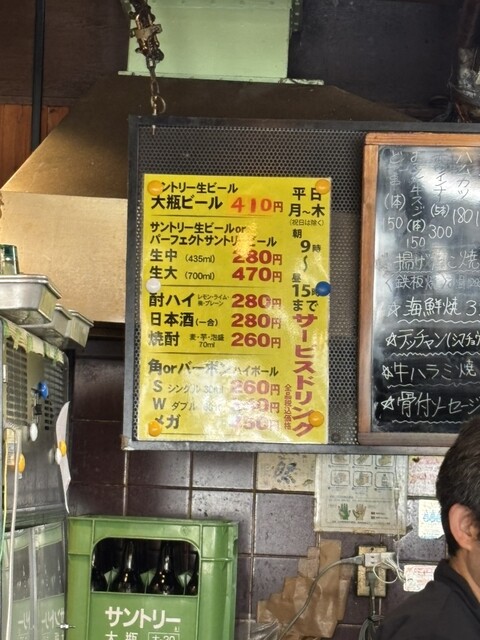 ントリー生ビール
大瓶ビール 410円
サントリー生ビールor
パーフェクトサントリービール
生中 (435ml) 280円
生大 (700ml) 470円
酎ハイ レモン・ライム・梅・プレーン 280円
日本酒(一合) 280円
焼酎 麦・芋・泡盛 70ml 260円
角orバーボンハイボール
S シングル 260円
W ダブル 円
メガ 円
平日
月~木
(祝日は除く)
朝
9時
~
昼
15時
まで
サービスドリンク
全品税込価格
(体)
50
300
(体)
150
180
揚げ
鉄板
☆海鮮焼 3
☆テッチャン(シマチョウ
☆牛ハラミ焼
☆骨付ソーセージ
サントリー
大瓶 大-20